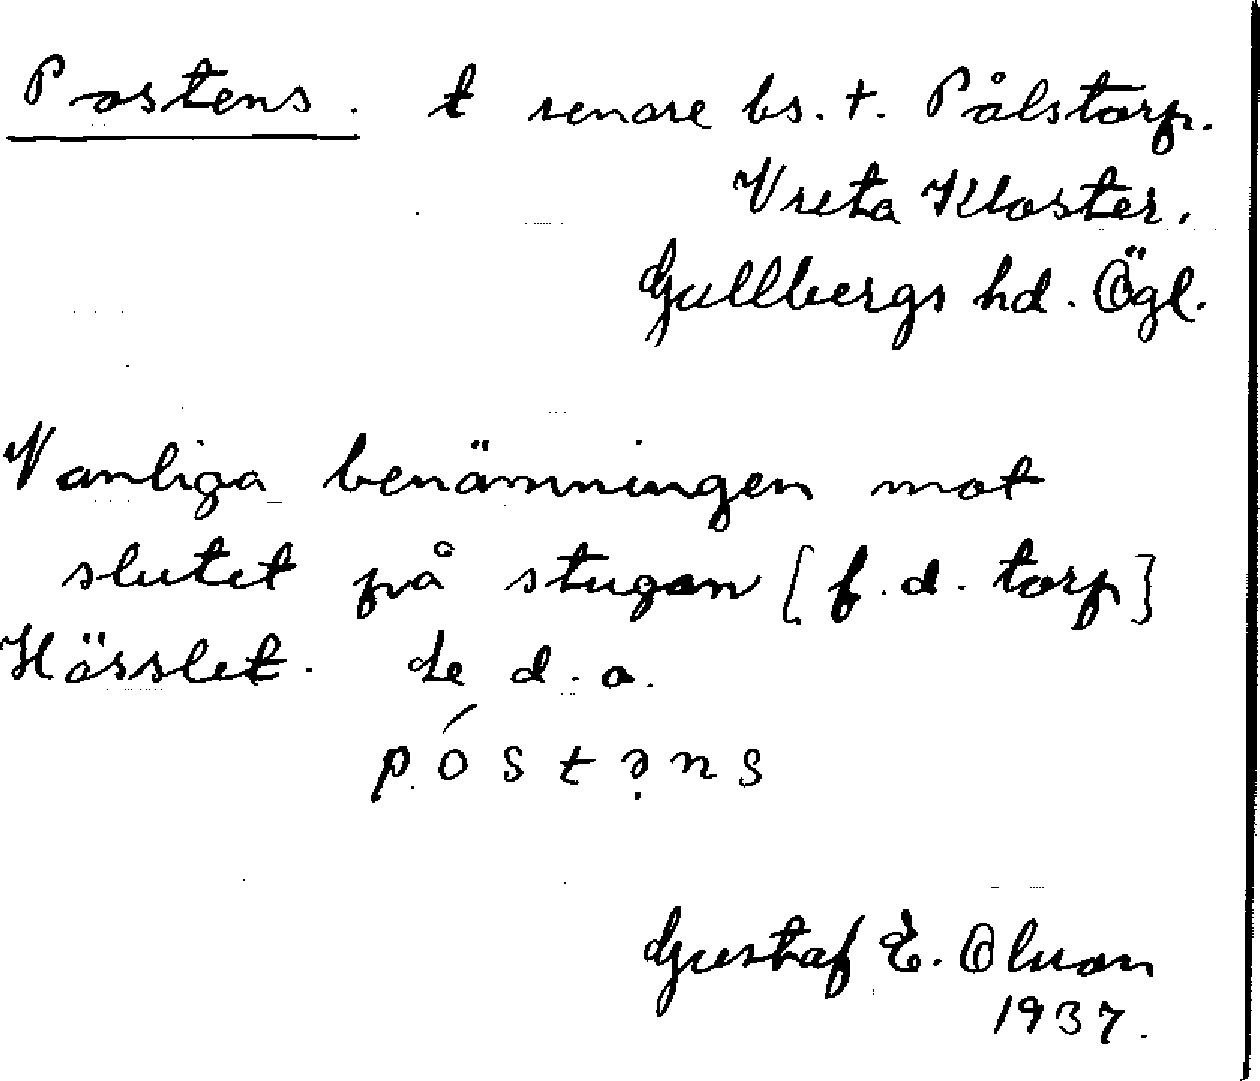 Postens. t senare bs. t. Pålstorp.
Vreta Kloster.
Gullbergs hd. Ögl.
Vanliga benämningen mot
slutet på stugan [f.d. torp]
Hässlet. Le d. a.
póstəns
Gustaf E. Olson
1937.